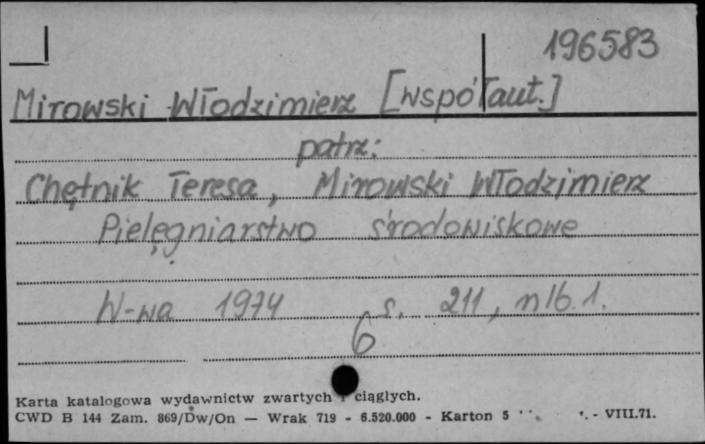 196583
Mirowski Włodzimierz [współaut.]
patrz:
Chętnik Teresa, Mirowski Włodzimierz
Pielęgniarstwo środowiskowe
W-wa 1974 s. 211, nlb. 1.
6
Karta katalogowa wydawnictw zwartych i ciągłych.
CWD B 144 Zam. 869/Dw/On — Wrak 719 - 6.520.000 - Karton 5 - VIII.71.